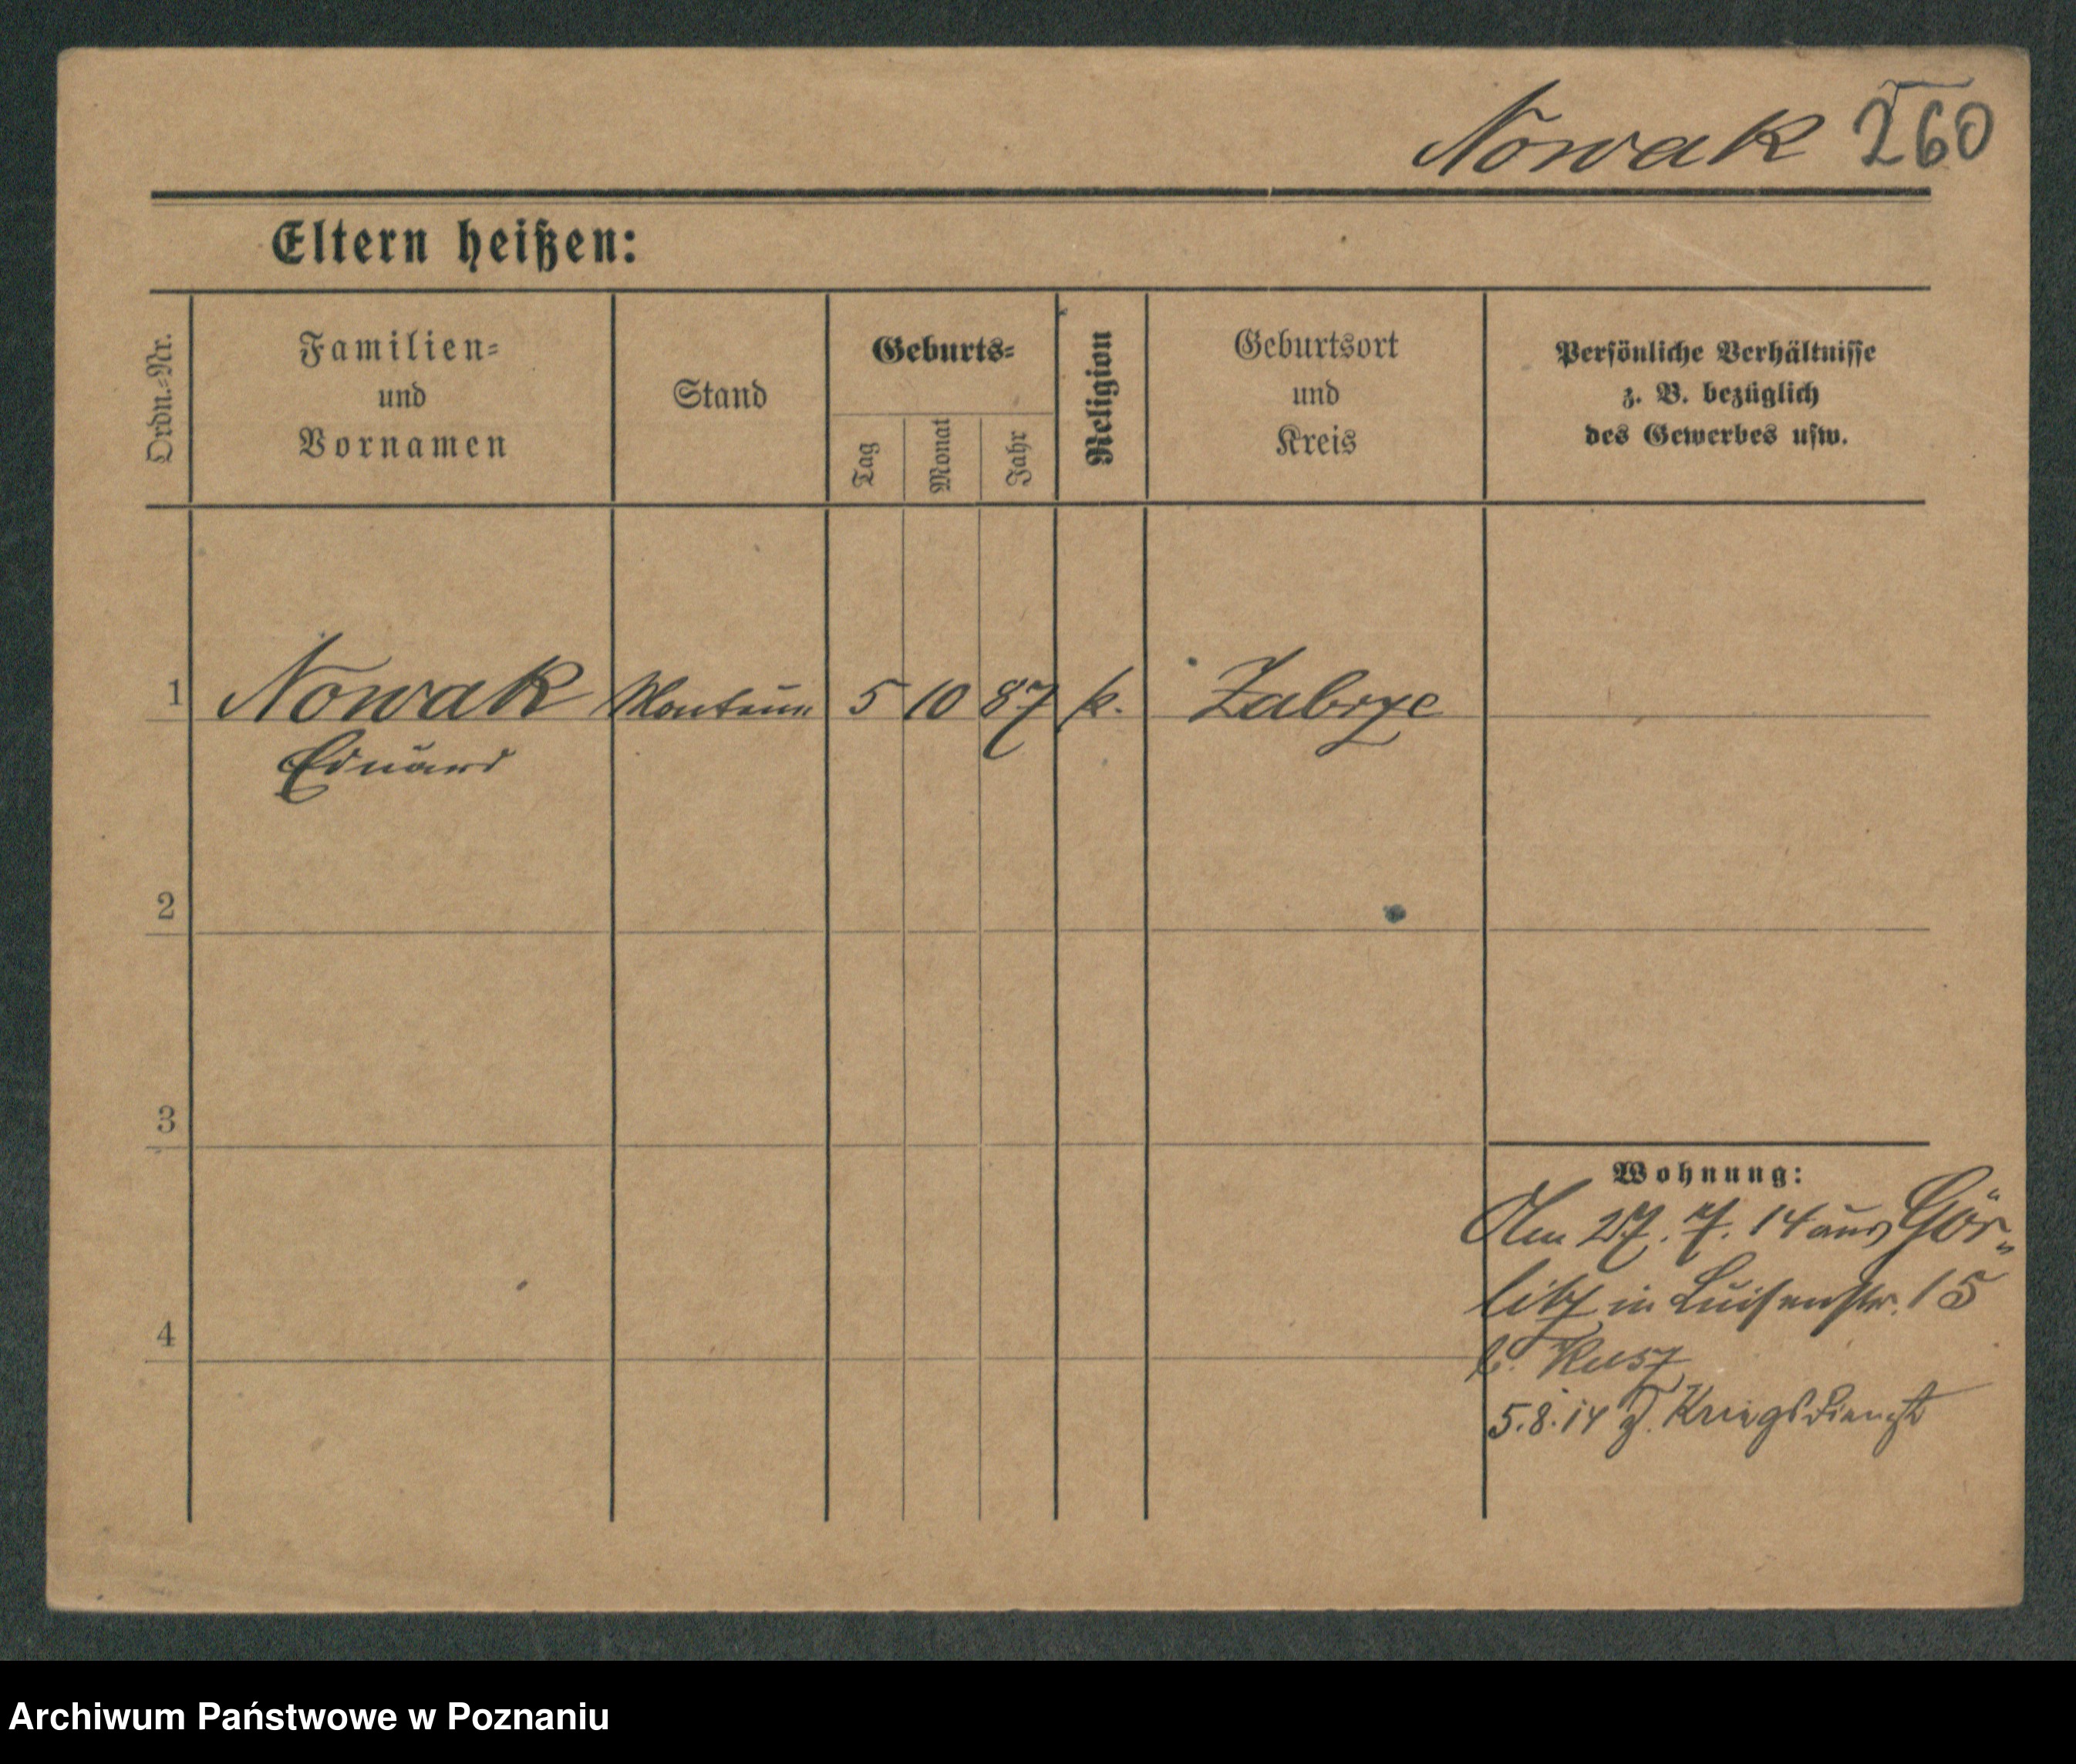 Nowak 260
Eltern heißen:
Ordn.=Nr.
Familien=
und
Vornamen
Stand
Geburts=
Tag
Monat
Jahr
Religion
Geburtsort
und
Kreis
Persönliche Verhältnisse
z. B. bezüglich
des Gewerbes usw.
1 Nowak Monteur 5 10 87 k. Zabrze
Eduard
2
3
Wohnung:
Am 27. 7. 14 aus Gör-
litz in Luisenstr. 15
4
b. Rusz
5.8.14 z. Kriegsdienst
Archiwum Państwowe w Poznaniu